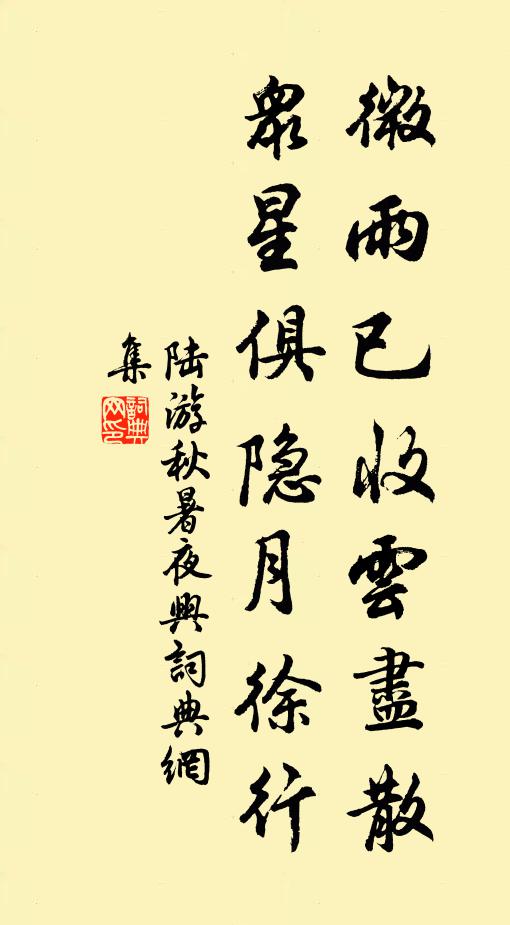 微雨已收雲盡散
眾星俱隐月徐行
陆游秋暑夜興詞典網
集
詞典網印